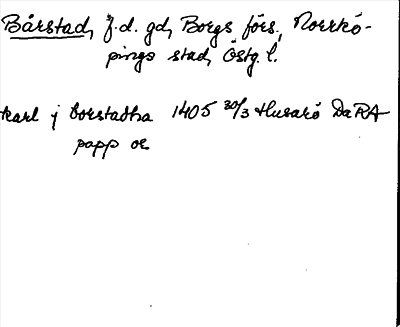 Bårstad, f.d. gd, Borgs förs., Norrkö-
pings stad, Östg. l.
karl j borstadha 1405 30/3 Husarö DaRA
papp or